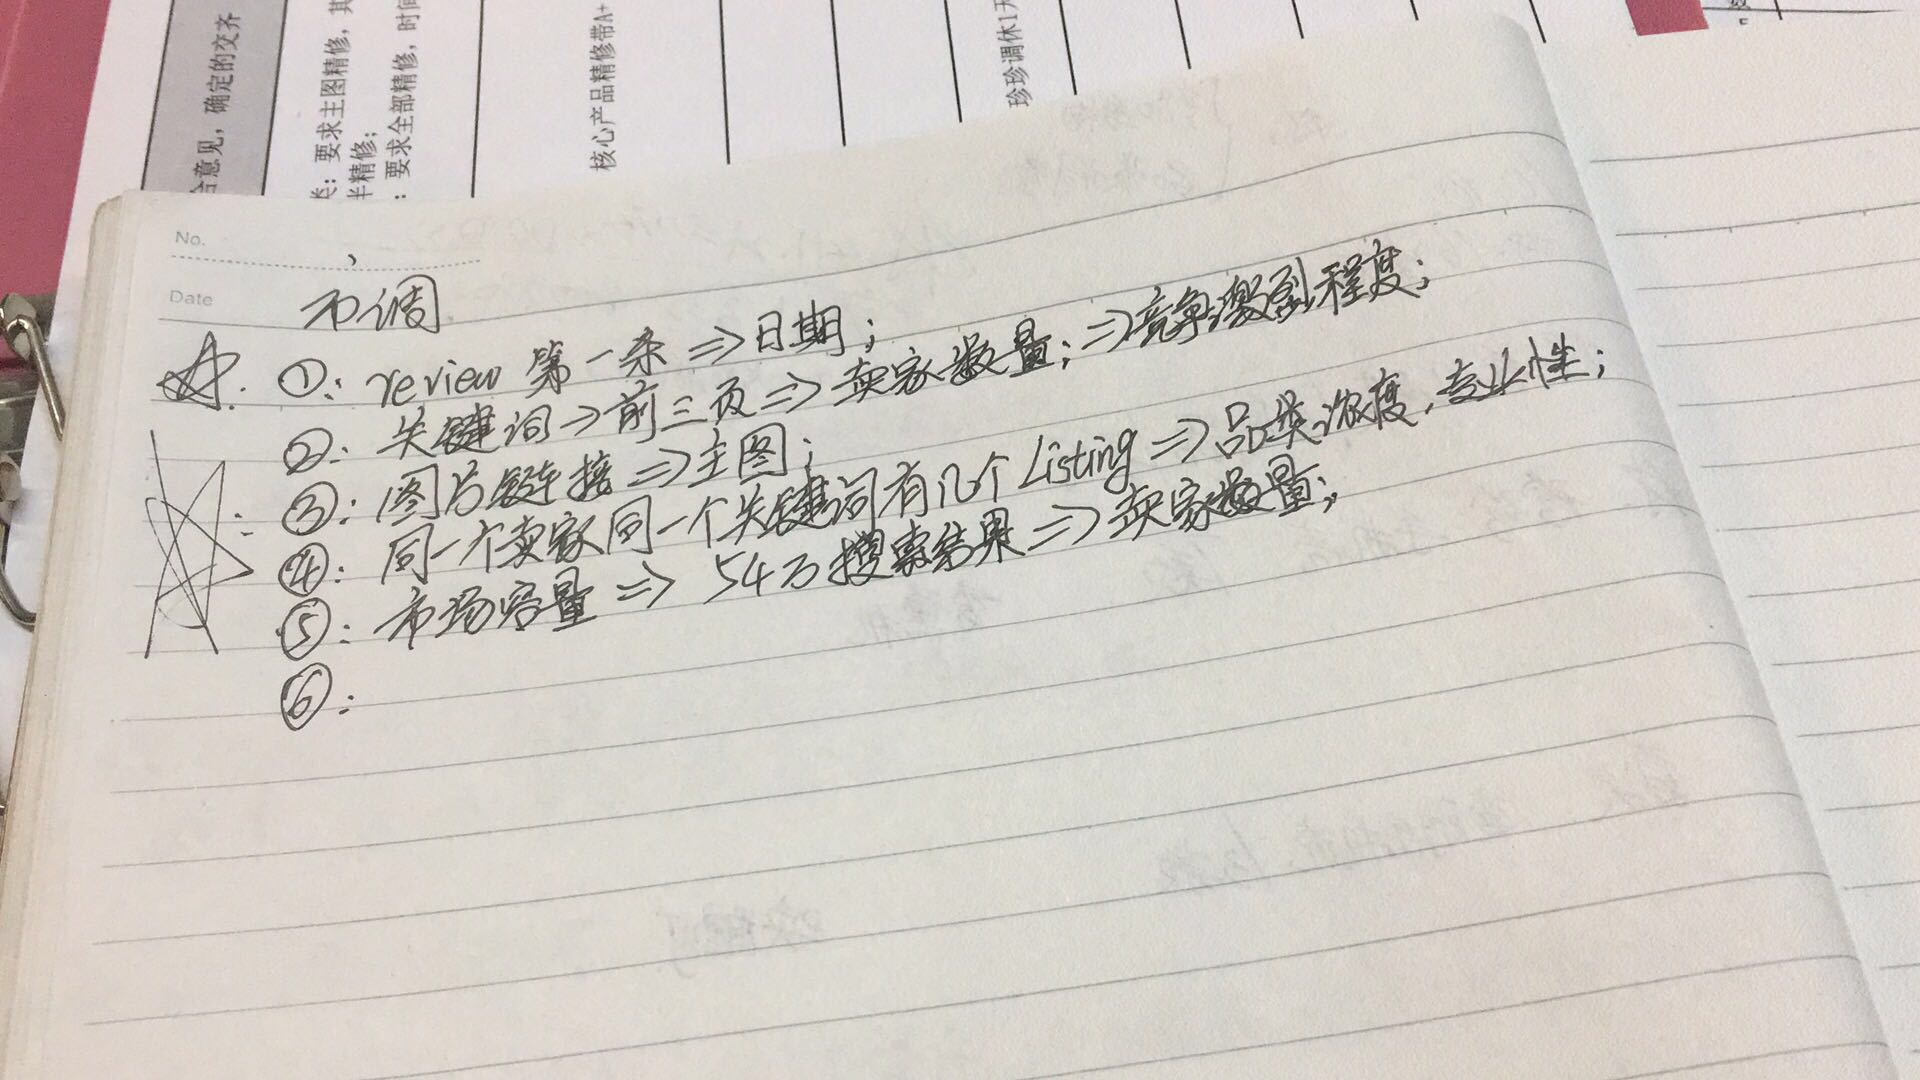 合意见，确定的交齐
类：要求主图精修，其
半精修；
：要求全部精修，时间
核心产品精修带A+
珍珍调休1天
No.
Date
市调
①：review 第一条 => 日期；
②：关键词→前三页=>卖家数量；=>竞争激烈程度；
③：图片链接=>主图；
④：同一个卖家同一个关键词有几个Listing=>品类浓度，专业性；
⑤：市场容量=> 54万搜索结果=>卖家数量；
⑥：